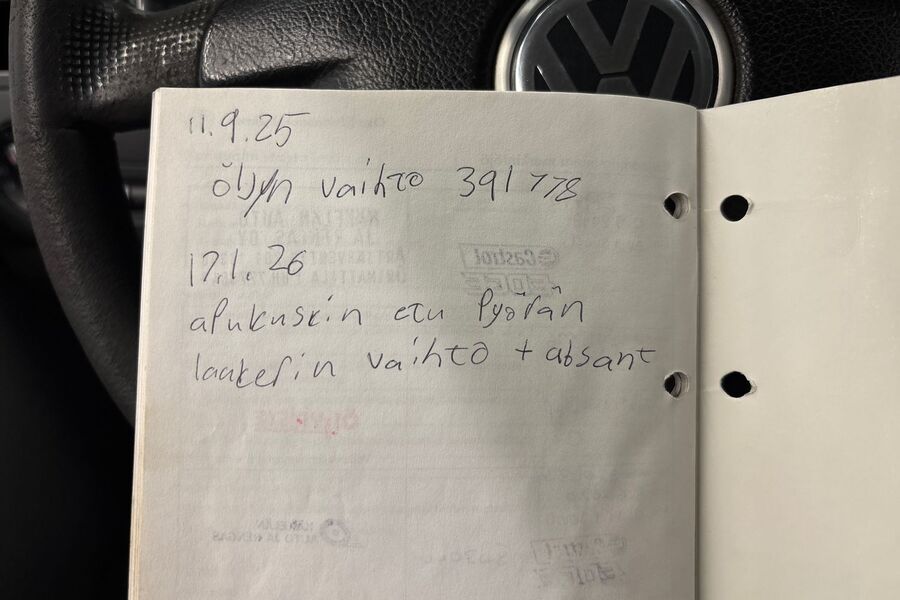 11.9.25
öljyn vaihto 391778
17.1.26
apukuskin etu pyörän
laakerin vaihto + absant